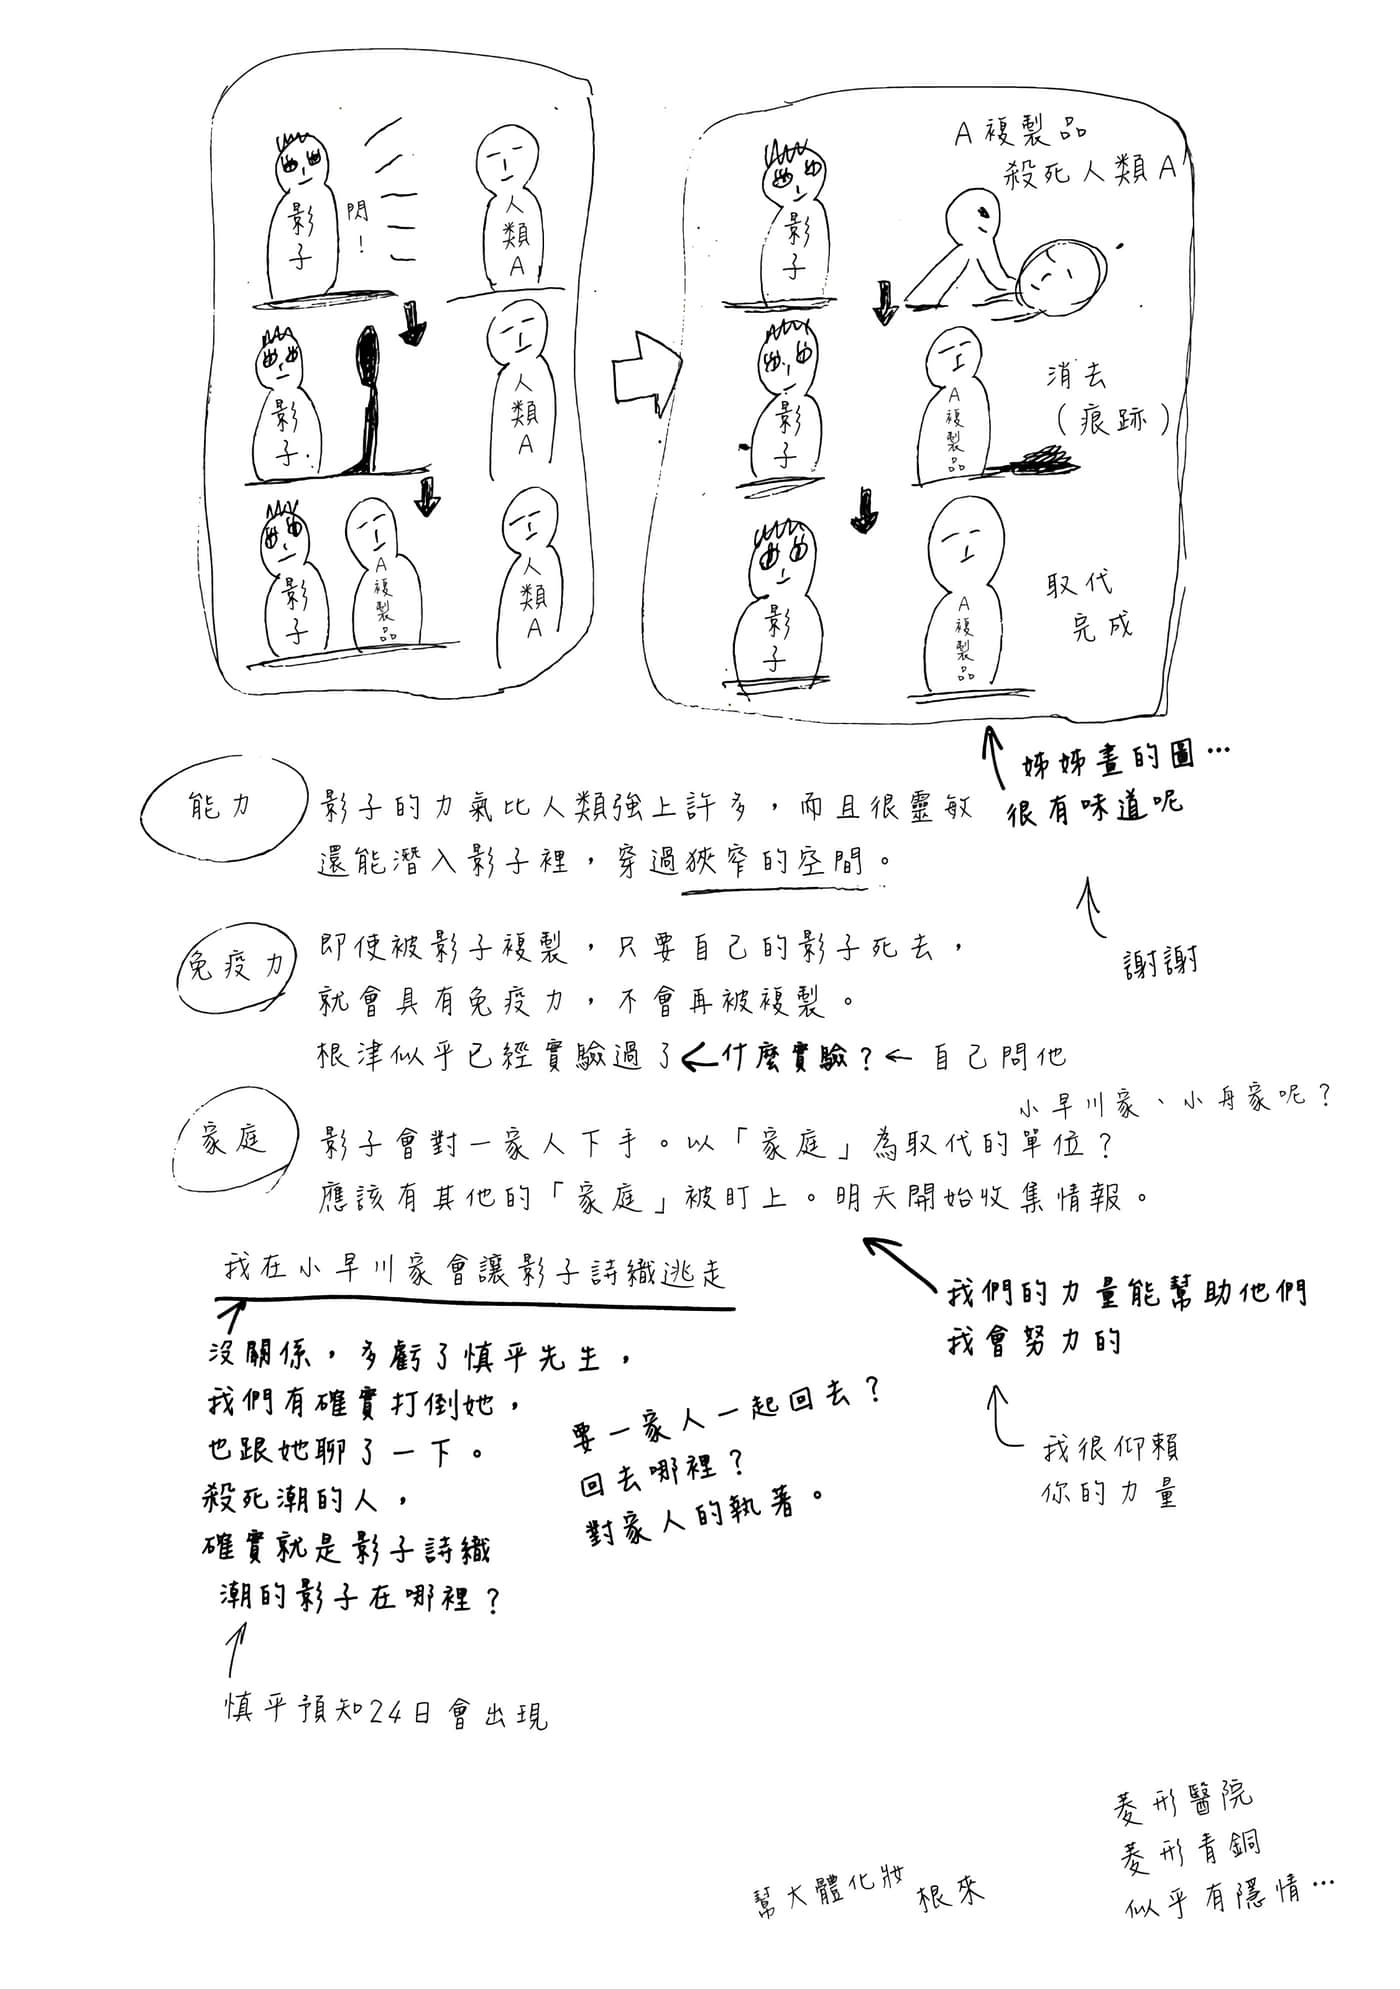 影子
閃！
人類A
影子
人類A
影子
A複製品
人類A
A複製品
殺死人類A
影子
影子
A複製品
消去
（痕跡）
影子
A複製品
取代
完成
姊姊畫的圖…
很有味道呢
謝謝
能力
影子的力氣比人類強上許多，而且很靈敏
還能潛入影子裡，穿過狹窄的空間。
免疫力
即使被影子複製，只要自己的影子死去，
就會具有免疫力，不會再被複製。
根津似乎已經實驗過了←什麼實驗？←自己問他
小早川家、小舟家呢？
家庭
影子會對一家人下手。以「家庭」為取代的單位？
應該有其他的「家庭」被盯上。明天開始收集情報。
我們的力量能幫助他們
我會努力的
我很仰賴
你的力量
我在小早川家會讓影子詩織逃走
沒關係，多虧了慎平先生，
我們有確實打倒她，
也跟她聊了一下。
殺死潮的人，
確實就是影子詩織
潮的影子在哪裡？
要一家人一起回去？
回去哪裡？
對家人的執著。
慎平預知24日會出現
菱形醫院
菱形青銅
似乎有隱情…
幫大體化妝
根來